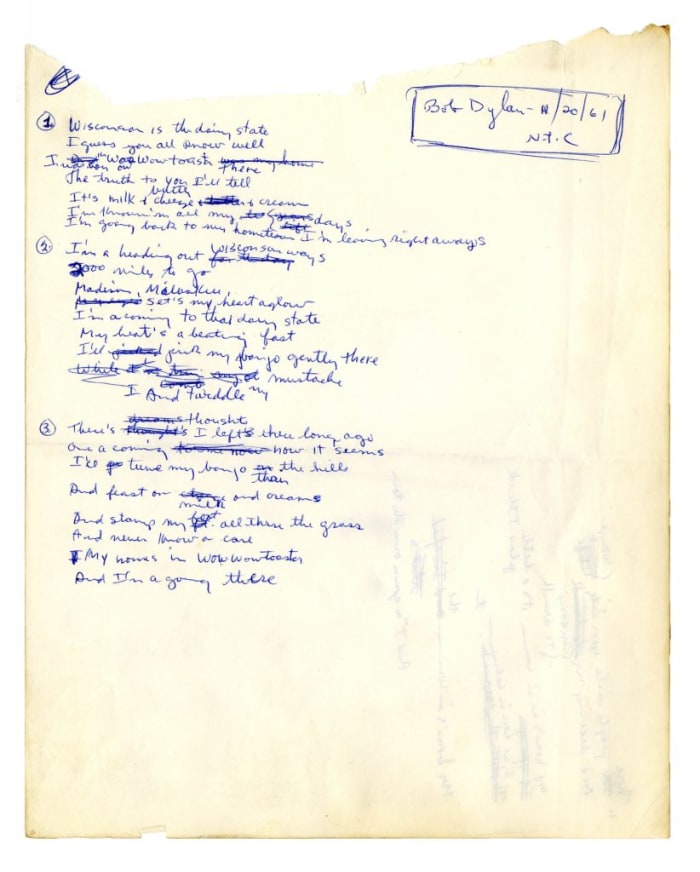 Bob Dylan - 11/20/61
N.Y.C
① Wisconsin is the dairy state
I guess you all know well
I was born on "Wow Wow toash there
The truth to you I'll tell
It's milk & cheese & cream
butter
I'm all my days
I'm going back to my hometown I'm leaving right aways
② I'm a heading out Wisconsin ways
2000 miles to go
Madison, Milwakee,
set's my heart aglow
I'm a coming to that dairy state
My heart's a beating fast
I'll pick my banjo gently there
mustache
I And twiddle my
③ There's thoughts I left there long ago
a coming now it seems
I'll tune my banjo the hills
then
And feast on and creams
milk
And stamp my feet all there the grass
And never know a care
My homes in Wow Wow toaster
And I'm a going there